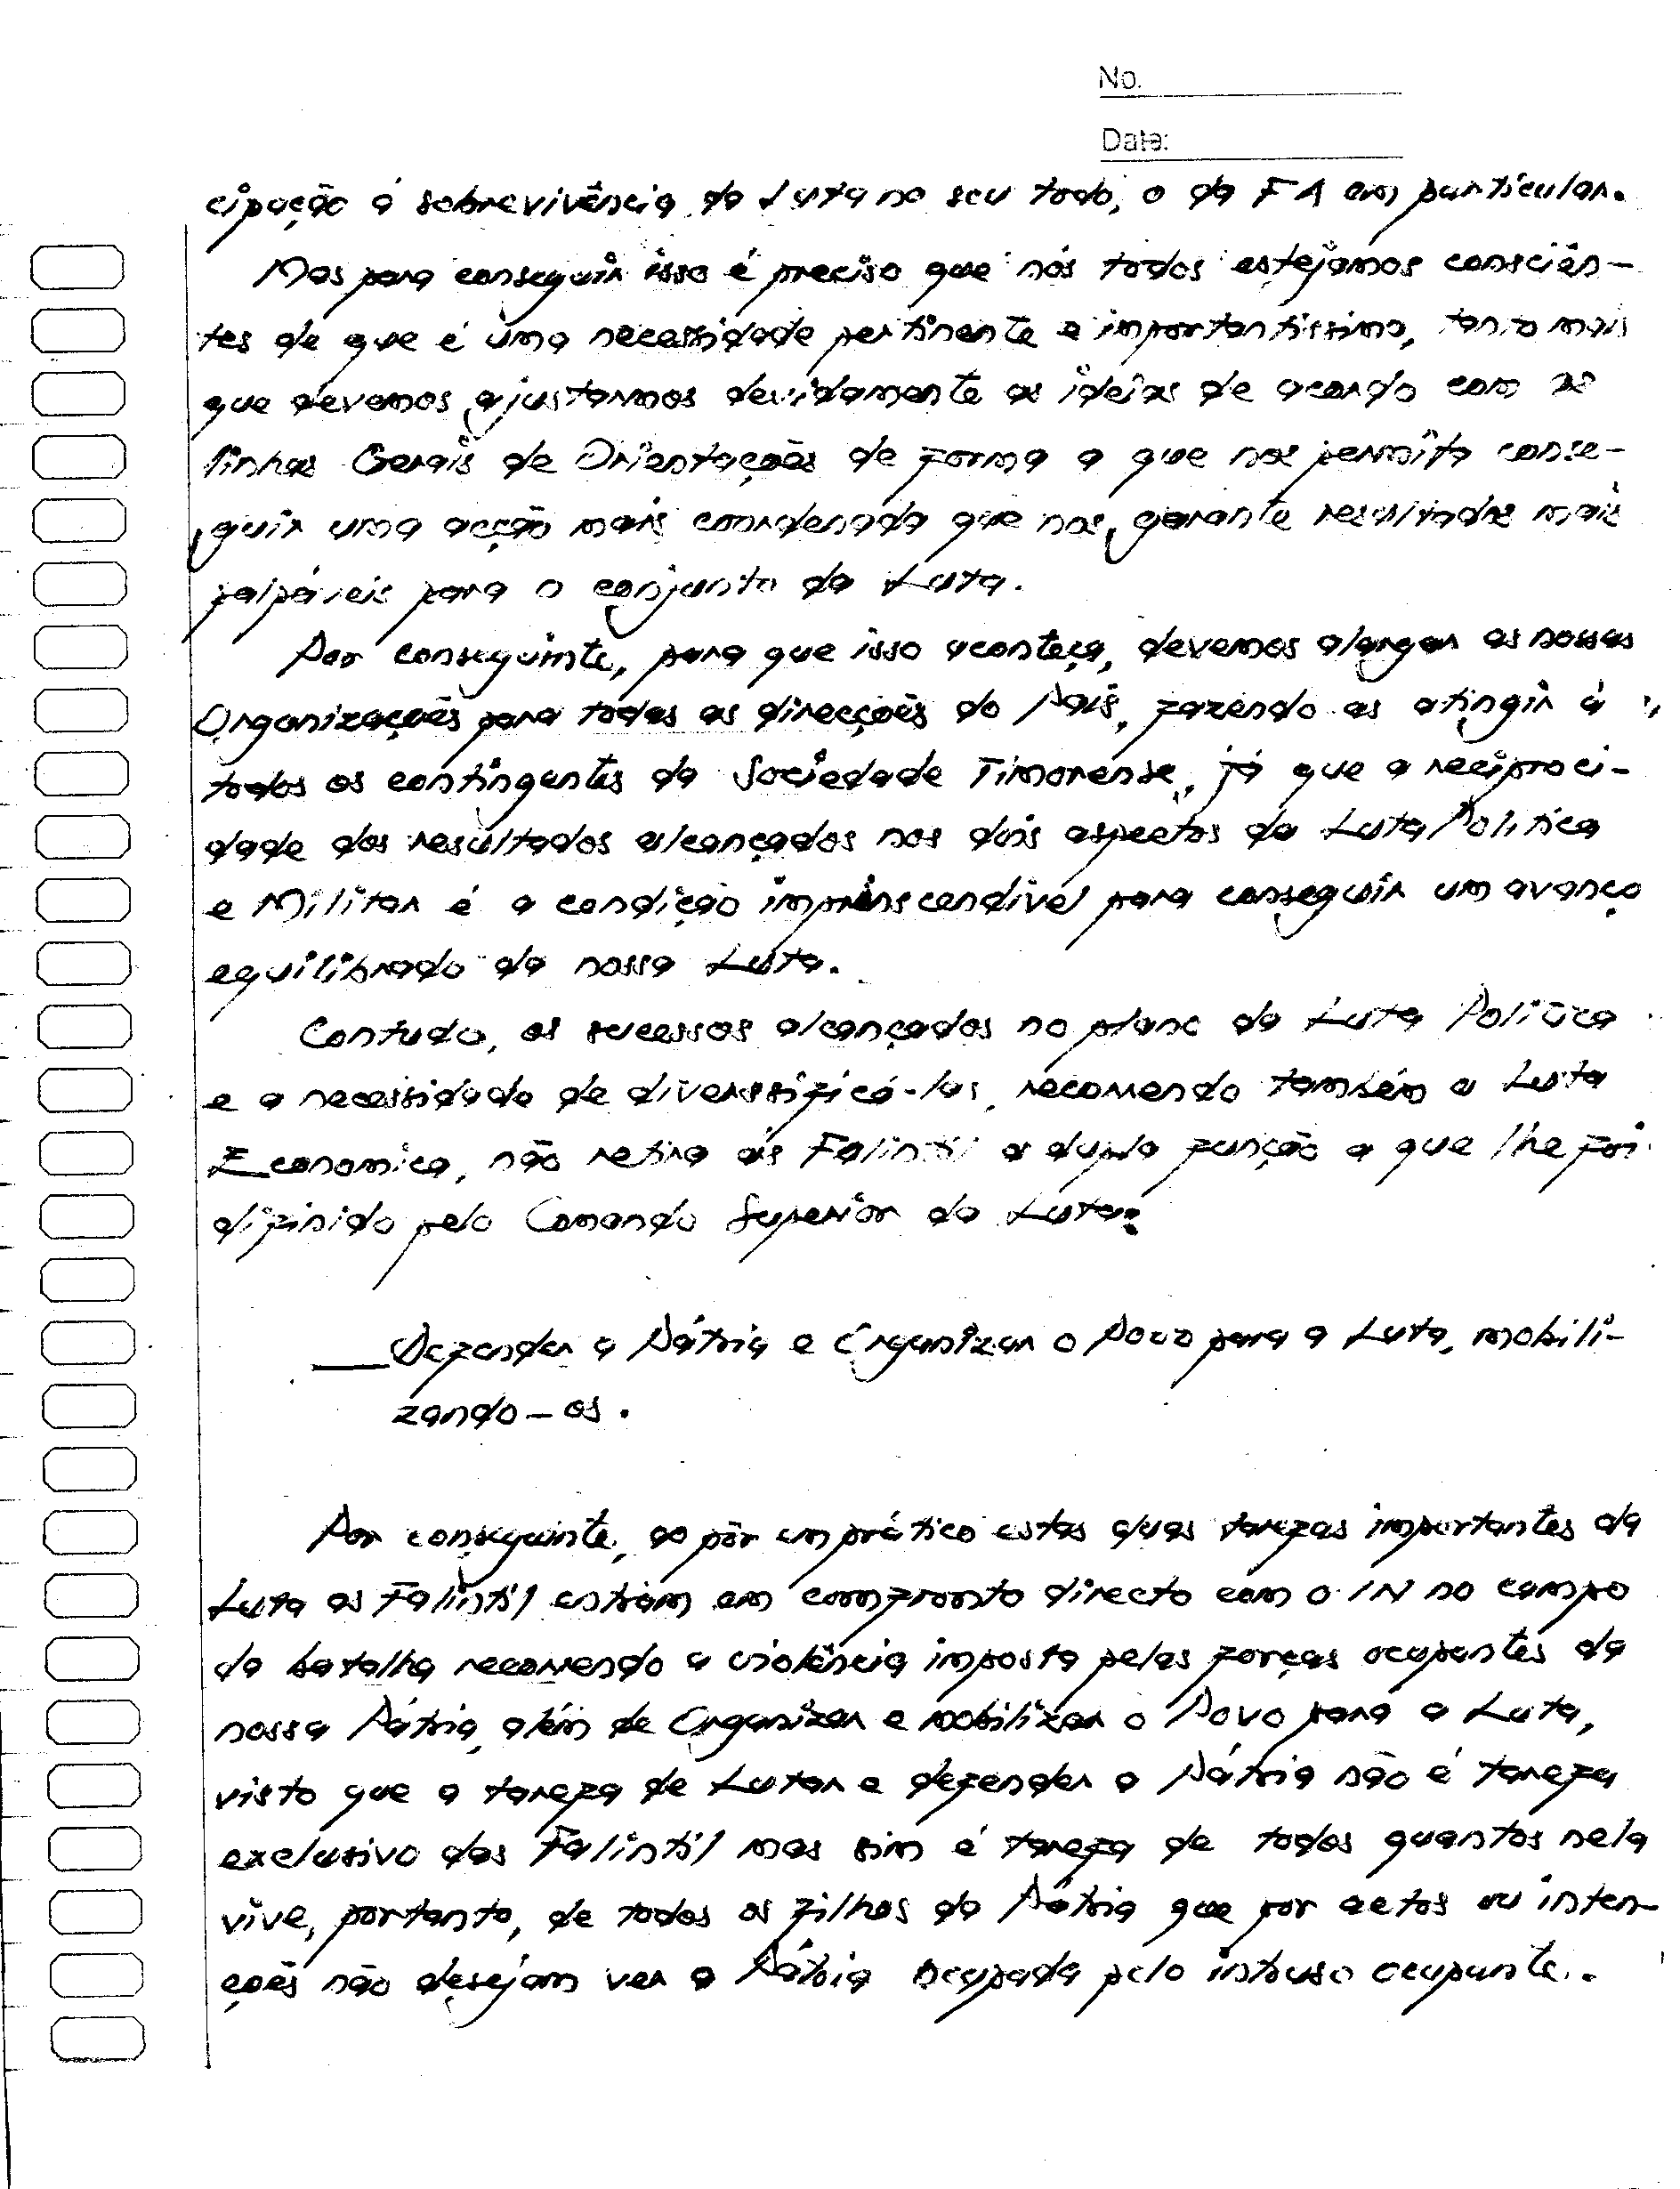 No.
Date:
cipação á sobrevivência da Luta no seu todo, o da FA em particular.
Mas para conseguir isso é preciso que nós todos estejamos consciên-
tes de que é uma necessidade pertinente e importantissimo, tanto mais
que devemos ajustarmos devidamente as ideias de acordo com as
linhas Gerais de Orientações de forma a que nos permita conse-
guir uma acção mais coordenada que nos garante resultados mais
palpáveis para o conjunto da Luta.
Por conseguinte, para que isso aconteça, devemos alargar as nossas
Organizações para todas as direcções do País, fazendo as atingir á
todos os contingentes da Sociedade Timorense, já que a reciproci-
dade dos resultados alcançados nos dois aspectos da Luta Politica
e Militar é a condição imprinscendivel para conseguir um avanço
equilibrado da nossa Luta.
Contudo, os sucessos alcançados no plano da Luta Politica
e a necessidade de diverssificá-las, recorrendo também a Luta
Economica, não retira ás Falintil a dupla função a que lhe foi
difinido pelo Comando Superior da Luta:
— Defender a Pátria e Organizar o Povo para a Luta, mobili-
zando-os.
Por conseguinte, ao pôr em prático estas duas tarefas importantes da
Luta as Falintil entram em comfronto directo com o IN no campo
da batalha recorrendo a violência imposta pelas forças ocupantes da
nossa Pátria, além de Organizar e mobilizar o Povo para a Luta,
visto que a tarefa de Lutar e defender a Pátria não é tarefa
exclusivo das Falintil mas sim é tarefa de todos quantos nela
vive, portanto, de todos os filhos da Pátria que por actos ou inten-
ções não desejam ver a Pátria ocupada pelo intruso ocupante.